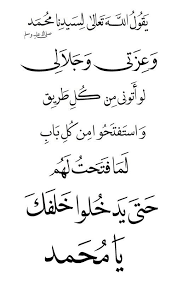 يَقُولُ اللَّهُ تَعَالَى لِسَيِّدِنَا مُحَمَّد
صلى الله عليه وسلم
وَعِزَّتِي وَجَلَالِي
لَوْ أَتَوْنِي مِنْ كُلِّ طَرِيقٍ
وَاسْتَفْتَحُوا مِنْ كُلِّ بَابٍ
لَمَا فَتَحْتُ لَهُمْ
حَتَّى يَدْخُلُوا خَلْفَكَ
يَا مُحَمَّد